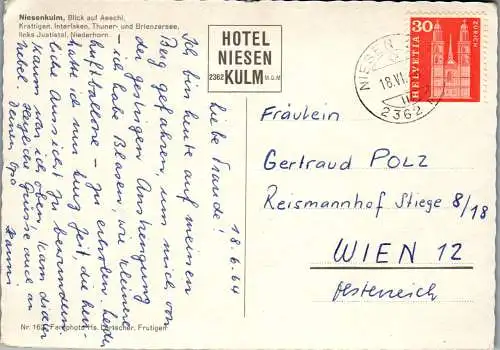 Niesenkulm, Blick auf Aeschi,
Krattigen, Interlaken, Thuner- und Brienzersee,
links Justistal, Niederhorn
HOTEL
NIESEN
KULM M.ü.M
2362
HELVETIA
30
ZÜRICH
NIESEN
18.VI.
2362
18.6.64
Liebe Traude!
Ich bin heute auf meinen
Berg gefahren, um mich von
der geringen Anstrengung
- ich habe Blasen, wie kleine
Luftballone - zu erholen. Leider
hatte ich nur kurz Zeit, die herr-
liche Aussicht zu bewundern.
Kaum war ich oben, kam dicker
Nebel. Herzliche Grüsse auch an
Deinen Opa
Hanni
Fräulein
Gertraud POLZ
Reismannhof Stiege 8/18
WIEN 12
Österreich
Fotophoto Hs. Lörtscher, Frutigen